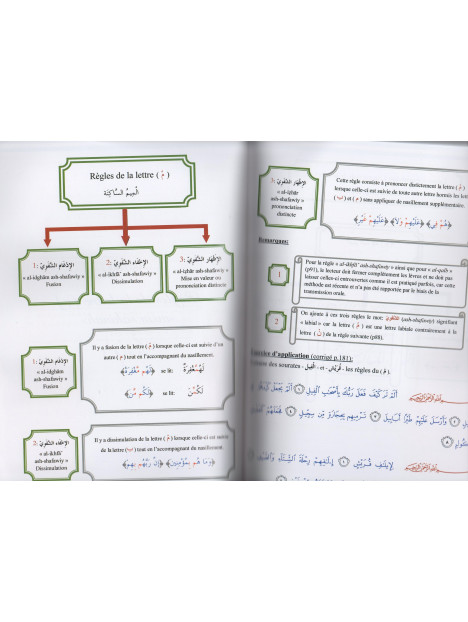 Règles de la lettre ( مْ )
الْمِيمُ السَّاكِنَة
1: الإدْغَام الشَّفَوِيّ
« al-idghâm
ash-shafawiy »
Fusion
2: الإخْفَاء الشَّفَوِيّ
« al-ikhfâ' ash-shafawiy »
Dissimulation
3: الإظْهَار الشَّفَوِيّ
« al-izhâr ash-shafawiy »
Mise en valeur ou
prononciation distincte
1: الإدْغَام الشَّفَوِيّ
« al-idghâm
ash-shafawiy »
Fusion
Il y a fusion de la lettre ( مْ ) lorsque celle-ci est suivie d'un
autre ( م ) tout en l'accompagnant du nasillement.
﴿لَهُم مَّغْفِرَةٌ﴾ se lit: لَهُمَّغْفِرَةٌ
﴿لَكُم مِّن﴾ se lit: لَكُمِّنْ
2: الإخْفَاء الشَّفَوِيّ
« al-ikhfâ'
ash-shafawiy »
Dissimulation
Il y a dissimulation de la lettre ( مْ ) lorsque celle-ci est suivie
de la lettre ( ب ) tout en l'accompagnant du nasillement.
﴿وَمَا هُم بِمُؤْمِنِينَ﴾ ﴿إِنَّ رَبَّهُم بِهِمْ﴾
3: الإظْهَار الشَّفَوِيّ
« al-izhâr
ash-shafawiy »
prononciation
distincte
Cette règle consiste à prononcer distinctement la lettre ( مْ )
lorsque celle-ci est suivie de toute autre lettre hormis les lettres
( ب ) et ( م ) sans appliquer de nasillement supplémentaire.
﴿هُمْ فِي﴾ ﴿عَلَيْهِمْ وَلَا﴾ ﴿عَلَيْهِمْ غَيْرِ﴾
Remarques:
1
Pour la règle « al-ikhfâ' ash-shafawiy » ainsi que pour « al-qalb »
(p91), le lecteur doit fermer complètement les lèvres et ne doit pas
les laisser entrouvertes comme il est pratiqué parfois, car cette
méthode est récente et n'a pas été rapportée par le biais de la
transmission orale.
2
On ajoute à ces trois règles le mot: الشَّفَوِيّ (ash-shafawiy) signifiant
« labial » car la lettre ( م ) est une lettre labiale contrairement à la
lettre ( ن ) des règles du chapitre précédent (p88).
d'application (corrigé p.181):
des sourates - الْفِيل - et - قُرَيْش - les règles du ( مْ )
أَلَمْ تَرَ كَيْفَ فَعَلَ رَبُّكَ بِأَصْحَابِ الْفِيلِ ١ أَلَمْ يَجْعَلْ كَيْدَهُمْ
٢ وَأَرْسَلَ عَلَيْهِمْ طَيْرًا أَبَابِيلَ ٣ تَرْمِيهِم بِحِجَارَةٍ مِّن سِجِّيلٍ ٤
لِإِيلَافِ قُرَيْشٍ ١ إِيلَافِهِمْ رِحْلَةَ الشِّتَاءِ وَالصَّيْفِ